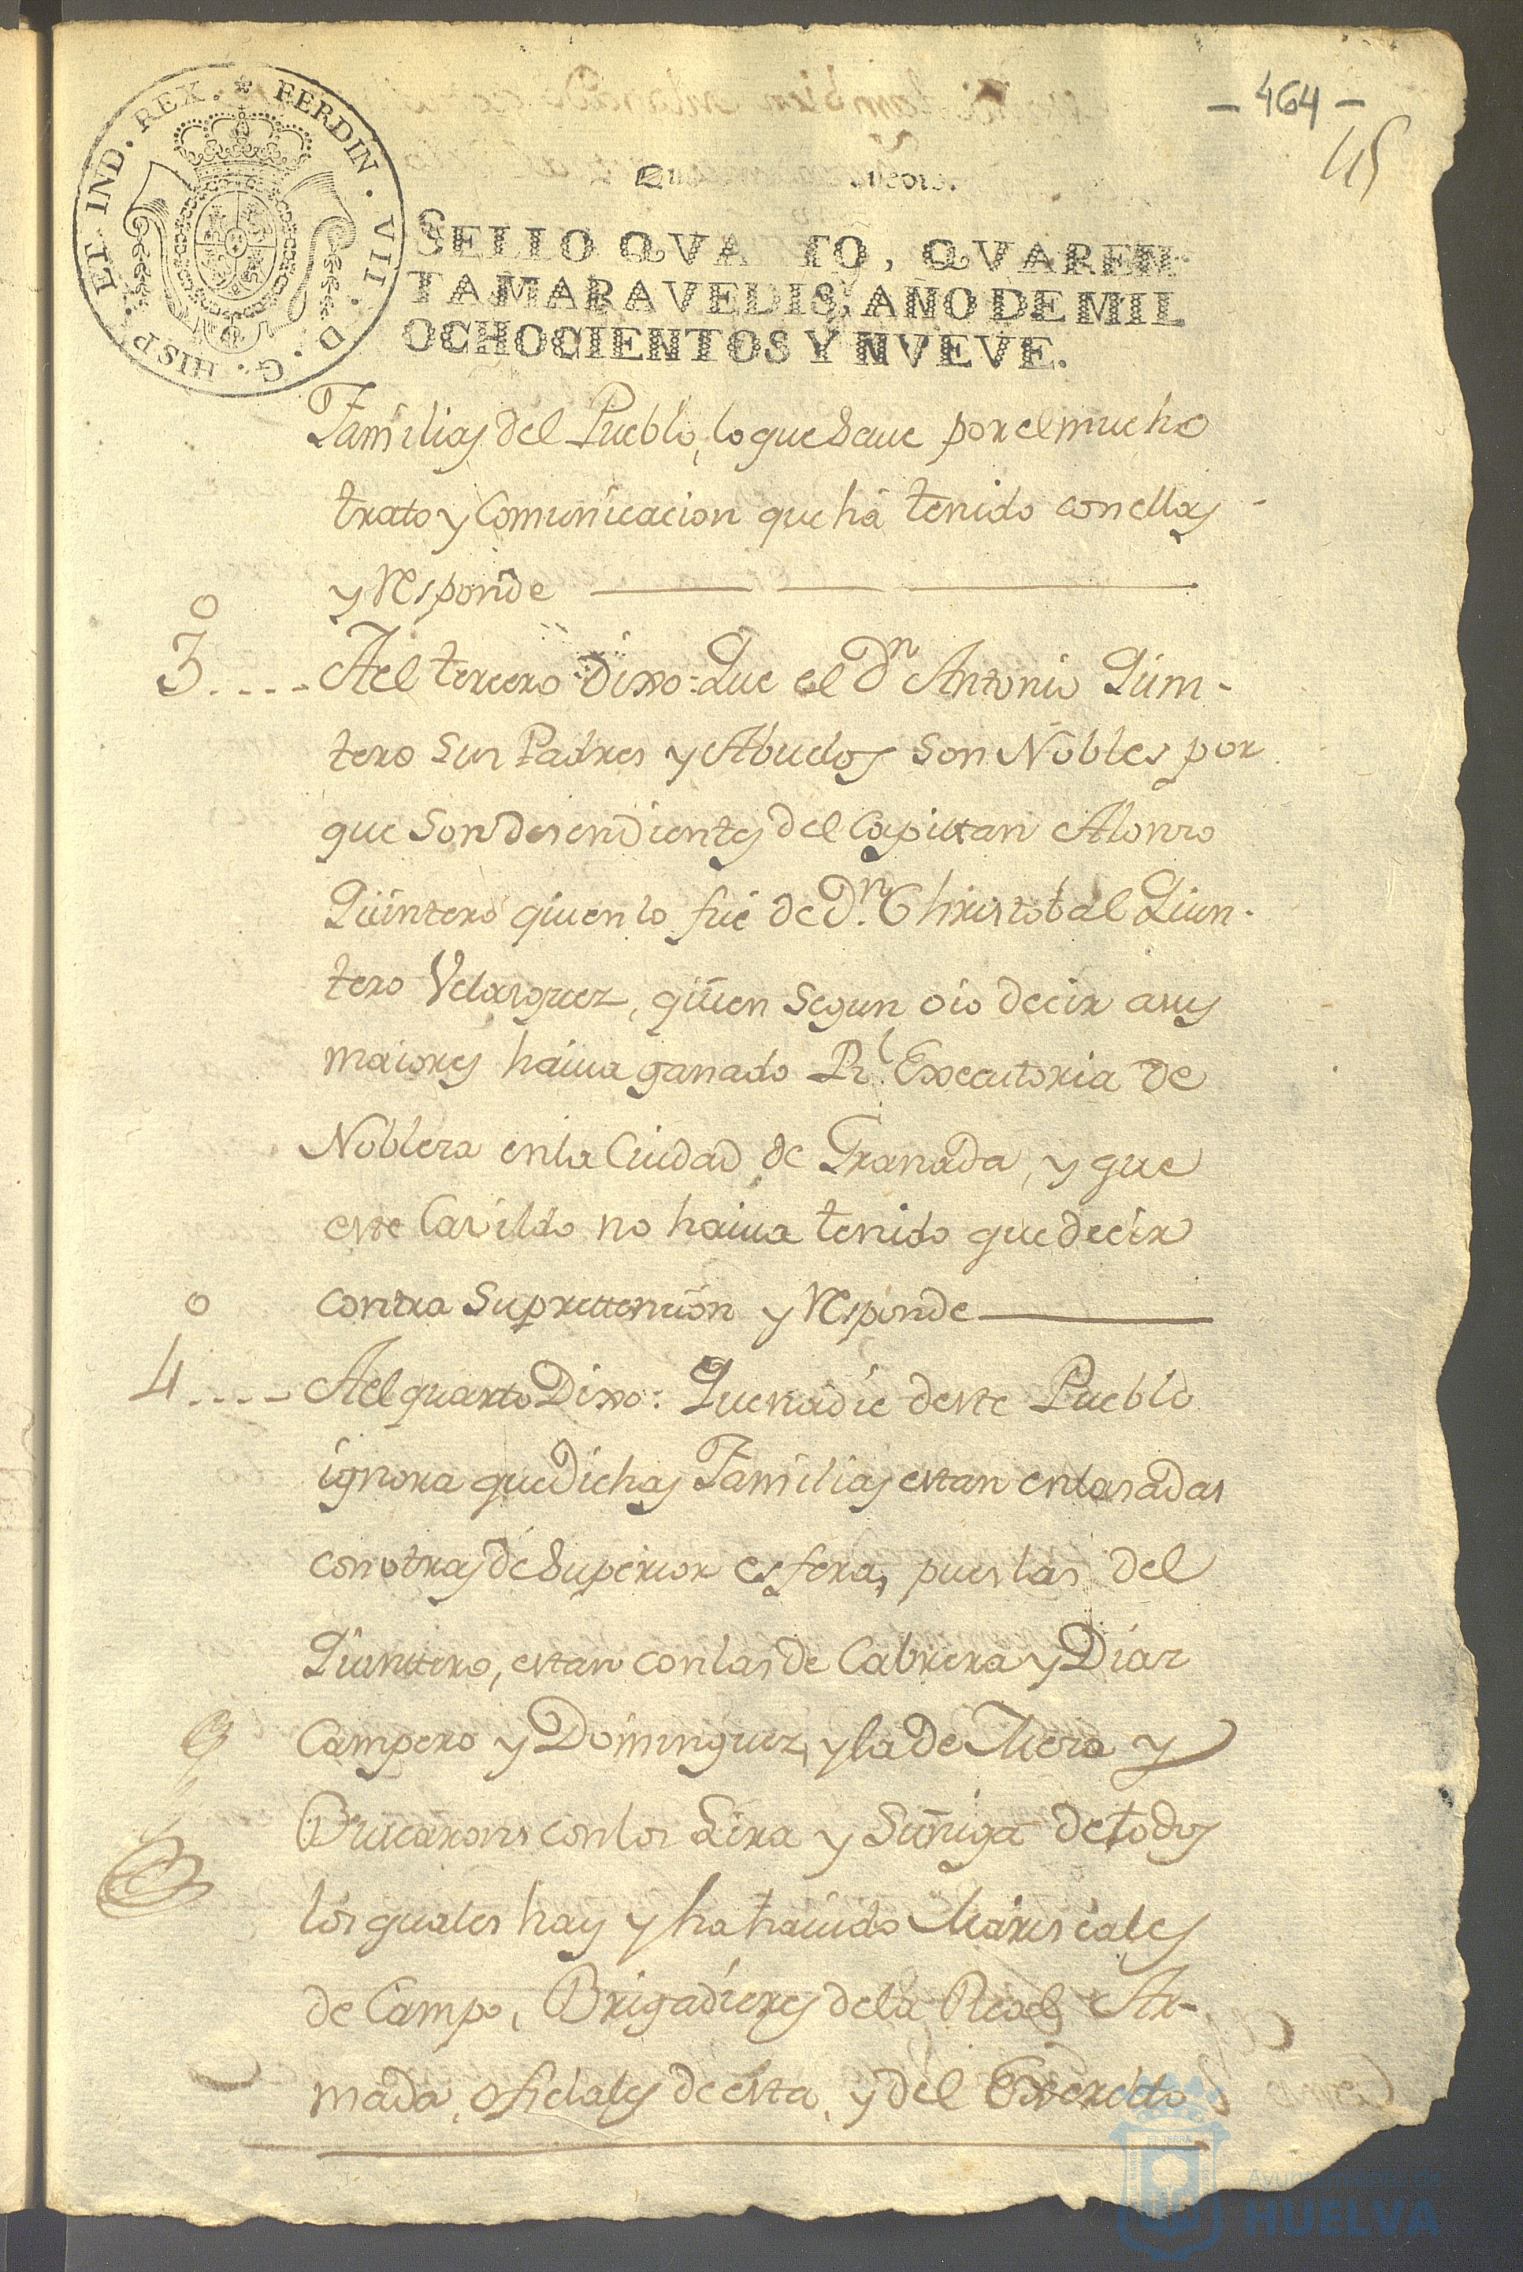 - 464 -
45
HISP. ET. IND. REX. FERDIN. VII. D. G.
SELLO QVARTO, QVAREN-
TA MARAVEDIS, AÑO DE MIL
OCHOCIENTOS Y NVEVE.
Familias del Pueblo, lo que save por el mucho
trato y Comunicacion que há tenido con ellas
y responde
3º .... Ael tercero Dixo: Que el Dn Antonio Quin-
tero sus Padres y Abuelos son Nobles por
que Son desendientes del Capittan Alonzo
Quintero quien lo fue de Dn. Christobal Quin-
tero Velasquez, quien Segun oio decir a sus
maiores haiva ganado Rl. Executoria de
Nobleza en la Ciudad de Granada, y que
este Cavildo no haiva tenido que decir
contra Su prettencion y responde
4º .... Ael quarto Dixo: Que nadie deste Pueblo
ignora que Dichas Familias estan enlasadas
con otras de Superior esfera, pues las del
Quinttero, estan con las de Cabrera y Diaz
Campero y Dominguez, y la de Mora y
con los Lira y Suñiga de todos
los quales hay y ha havido Mariscales
de Campo, Brigadieres de la Real Ar-
mada, oficiales de esta, y del Exercito
Ayuntamiento de
HUELVA